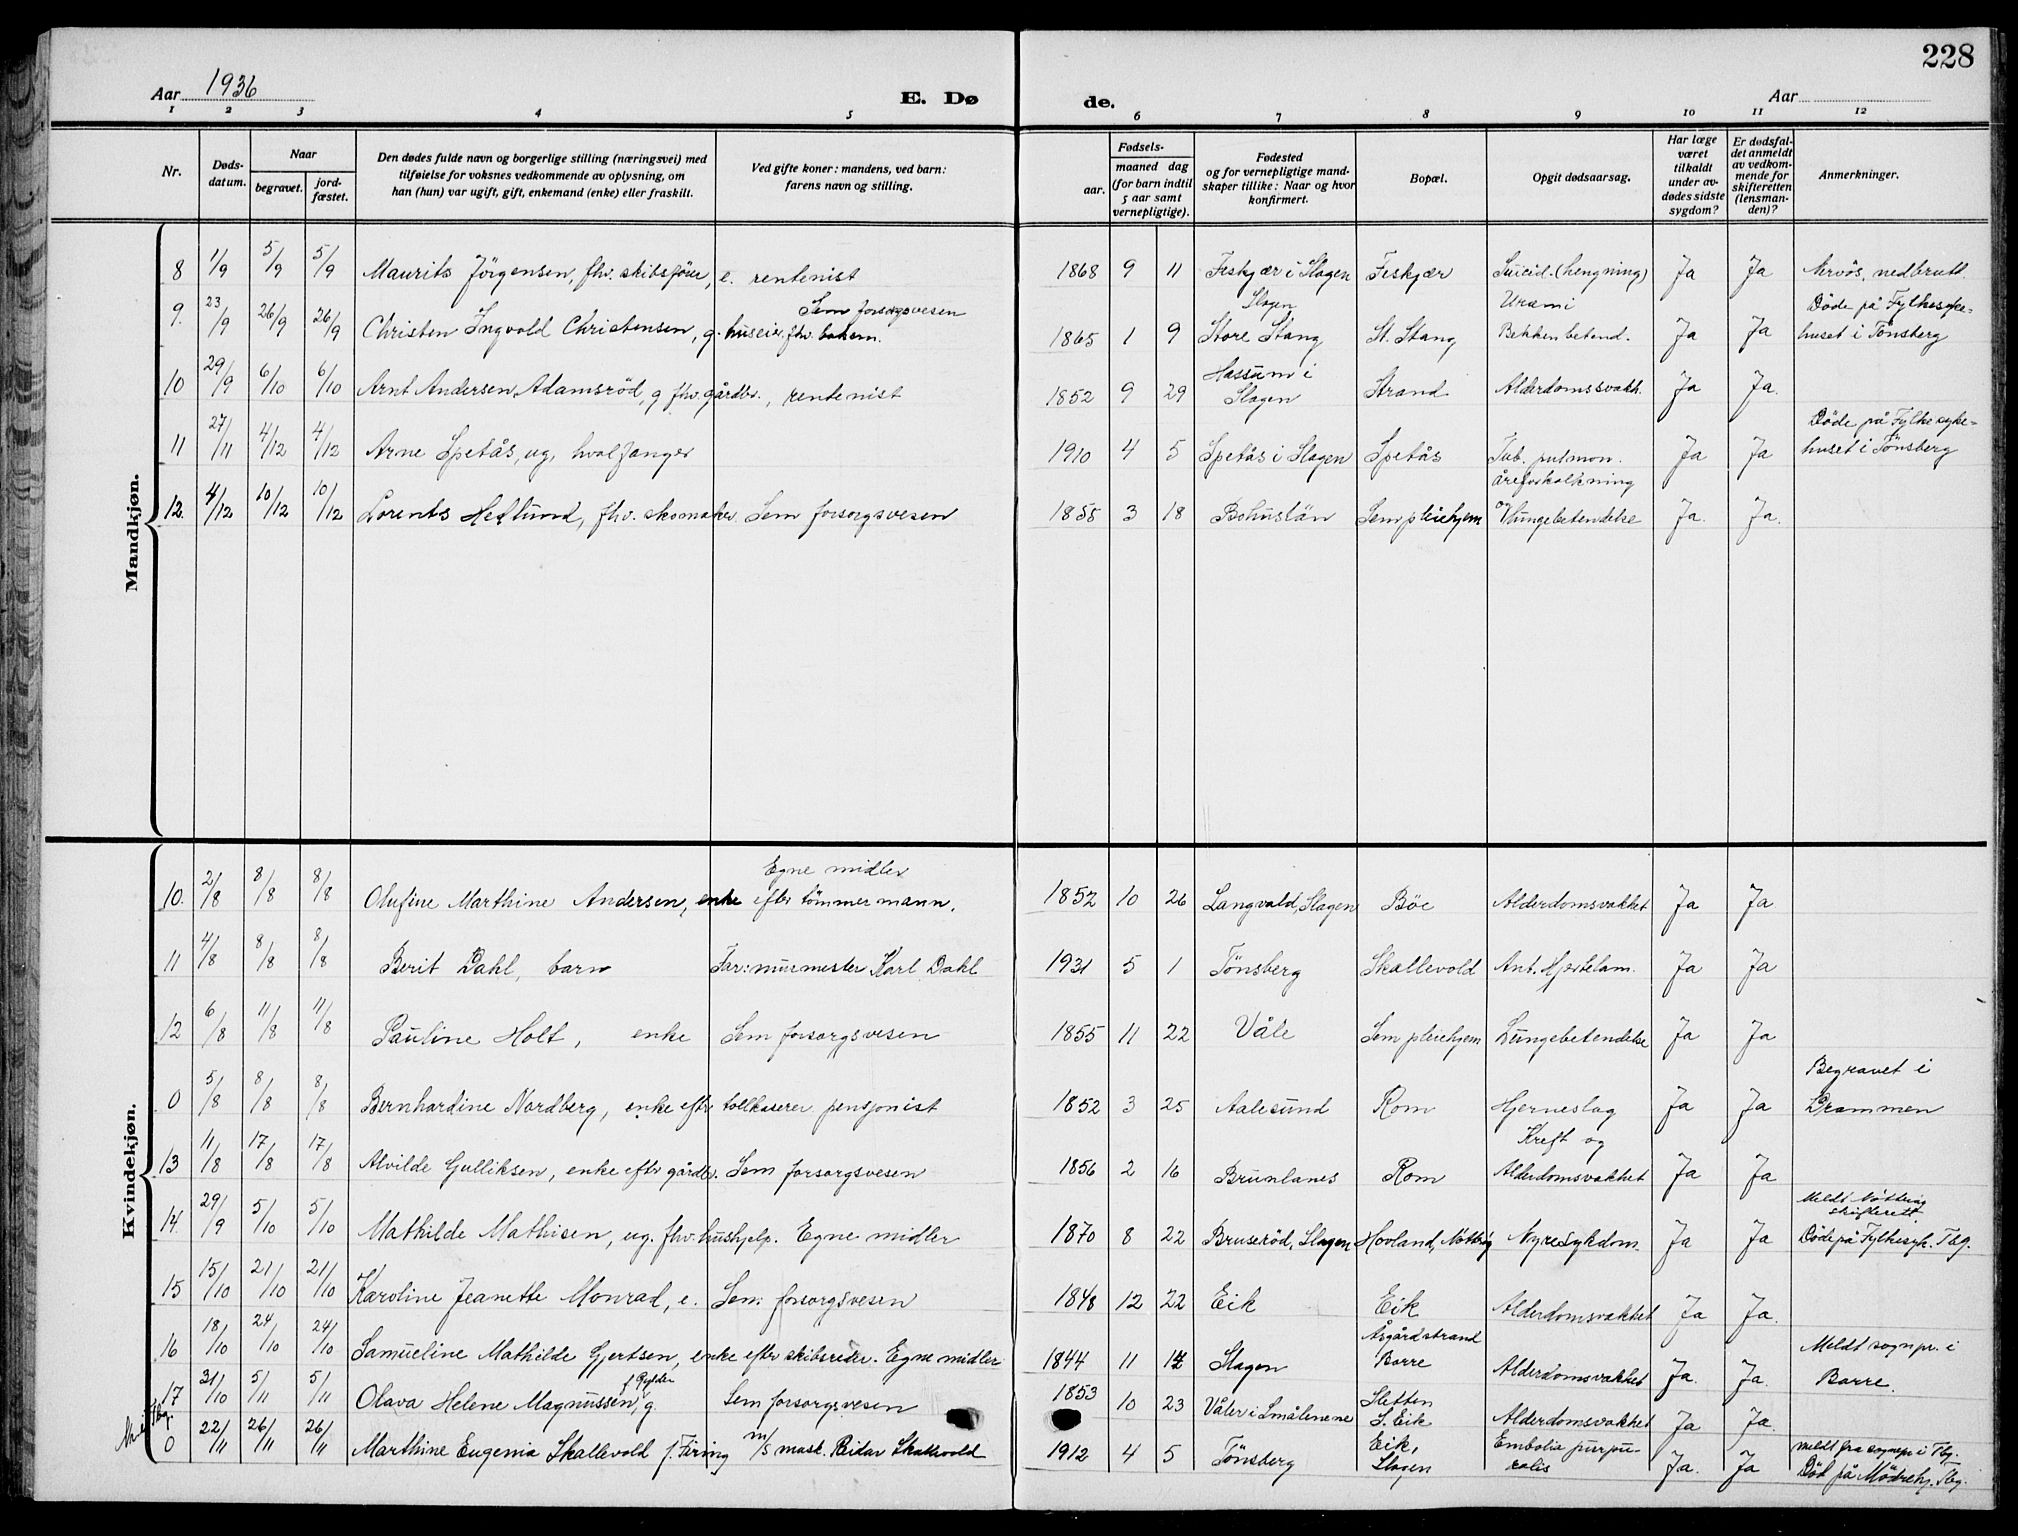 228
Aar 1936
E. Dø
de.
Aar
1 2 3 4 5 6 7 8 9 10 11 12
Nr.
Døds-
datum.
Naar
begravet.
jord-
fæstet.
Den dødes fulde navn og borgerlige stilling (næringsvei) med
tilføielse for voksnes vedkommende av oplysning, om
han (hun) var ugift, gift, enkemand (enke) eller fraskilt.
Ved gifte koner: mandens, ved barn:
farens navn og stilling.
Fødsels-
aar.
maaned dag
(for barn indtil
5 aar samt
vernepligtige).
Fødested
og for vernepligtige mand-
skaper tillike: Naar og hvor
konfirmert.
Bopæl.
Opgit dødsaarsag.
Har læge
været
tilkaldt
under av-
dødes sidste
sygdom?
Er dødsfal-
det anmeldt
av vedkom-
mende for
skifteretten
(lensman-
den)?
Anmerkninger.
Mandkjøn.
8 1/9 5/9 5/9 Maurits Jørgensen, fhv. skibsfører, e. rentenist 1868 9 11 Feskjær i Slagen Feskjær Suicid. (hengning) Ja Ja Nervøs, nedbrutt.
Sem forsorgsvesen Slagen Uremi Døde på Fylkesyke-
9. 23/9 26/9 26/9 Christen Ingvold Christensen, g. huseier, fhv. 1865 1 9 Store Stang St. Stang Bekkenbetend. Ja Ja huset i Tønsberg
Hassum i
10 29/9 6/10 6/10 Arnt Andersen Adamsrød, g fhv. gårdbr., rentenist 1852 9 29 Slagen Strand Alderdomssvakh. Ja Ja.
Døde på Fylkesyke-
11 27/11 4/12 4/12 Arne Spetås, ug, hvalfanger 1910 4 5 Spetås i Slagen Spetås Tub. pulmon. Ja Ja huset i Tønsberg
åreforkalkning
12. 4/12 10/12 10/12 Lorents Hedlund, fhv. skomaker. Sem forsorgsvesen 1855 3 18 Bohuslän Sem pleiehjem og lungebetendelse Ja. Ja.
Kvindekjøn.
Egne midler
10. 2/8 8/8 8/8 Olufine Marthine Andersen, enke efter tømmermann. 1852 10 26 Langvald, Slagen Bøe Alderdomsvakhet Ja Ja
11 4/8 8/8 8/8 Berit Dahl, barn Far: murmester Karl Dahl 1931 5 1 Tønsberg Skallevold Ant. Hjertelam. Ja Ja
12 6/8 11/8 11/8 Pauline Holt, enke Sem forsorgsvesen 1855 11 22 Våle Sem pleiehjem Lungebetendelse Ja Ja
Begravet i
0 5/8 8/8 8/8 Bernhardine Nordberg, enke eftr tollkaserer pensjonist 1852 3 25 Aalesund Rom Hjerneslag Ja Ja Drammen
Kreft og
13 11/8 17/8 17/8 Alvilde Gulliksen, enke eftr gårdbr. Sem forsorgsvesen 1856 2 16 Brunlanes Rom Alderdomsvakhet Ja Ja
Meldt Nøtterøy
skifterett.
14. 29/9 5/10 5/10 Mathilde Mathisen, ug. fhv. hushjelp. Egne midler 1870 8 22 Bruserød, Slagen Hovland, Nøtterøy Nyresykdom. Ja Ja Døde på Fylkesyk. Tbg.
15 15/10 21/10 21/10 Karoline Jeanette Monrad, e. Sem forsorgsvesen 1848 12 22 Eik Eik Alderdomsvakhet Ja Ja.
Åsgårdstrand Meldt sognpr. i
16 18/10 24/10 24/10 Samueline Mathilde Gjertsen, enke eftr skibsreder. Egne midler 1844 11 14 Slagen Borre Alderdomsvakhet Ja. Ja. Borre.
f. Rylder Sletten
17 31/10 5/11 5/11 Olava Helene Magnussen, g. Sem forsorgsvesen 1853 10 23 Våler i Smålenene S. Eik Alderdomsvakhet Ja Ja.
Tbg.
0 22/11 26/11 26/11 Marthine Eugenia Skallevold f. Firing m/s mask. Reidar Skallevold 1912 4 5 Tønsberg Eik, Slagen Embolia puerpu-
ralis Ja. Ja meldt fra sognepr. i Tbg.
Død på Mødrehj. Tbg.